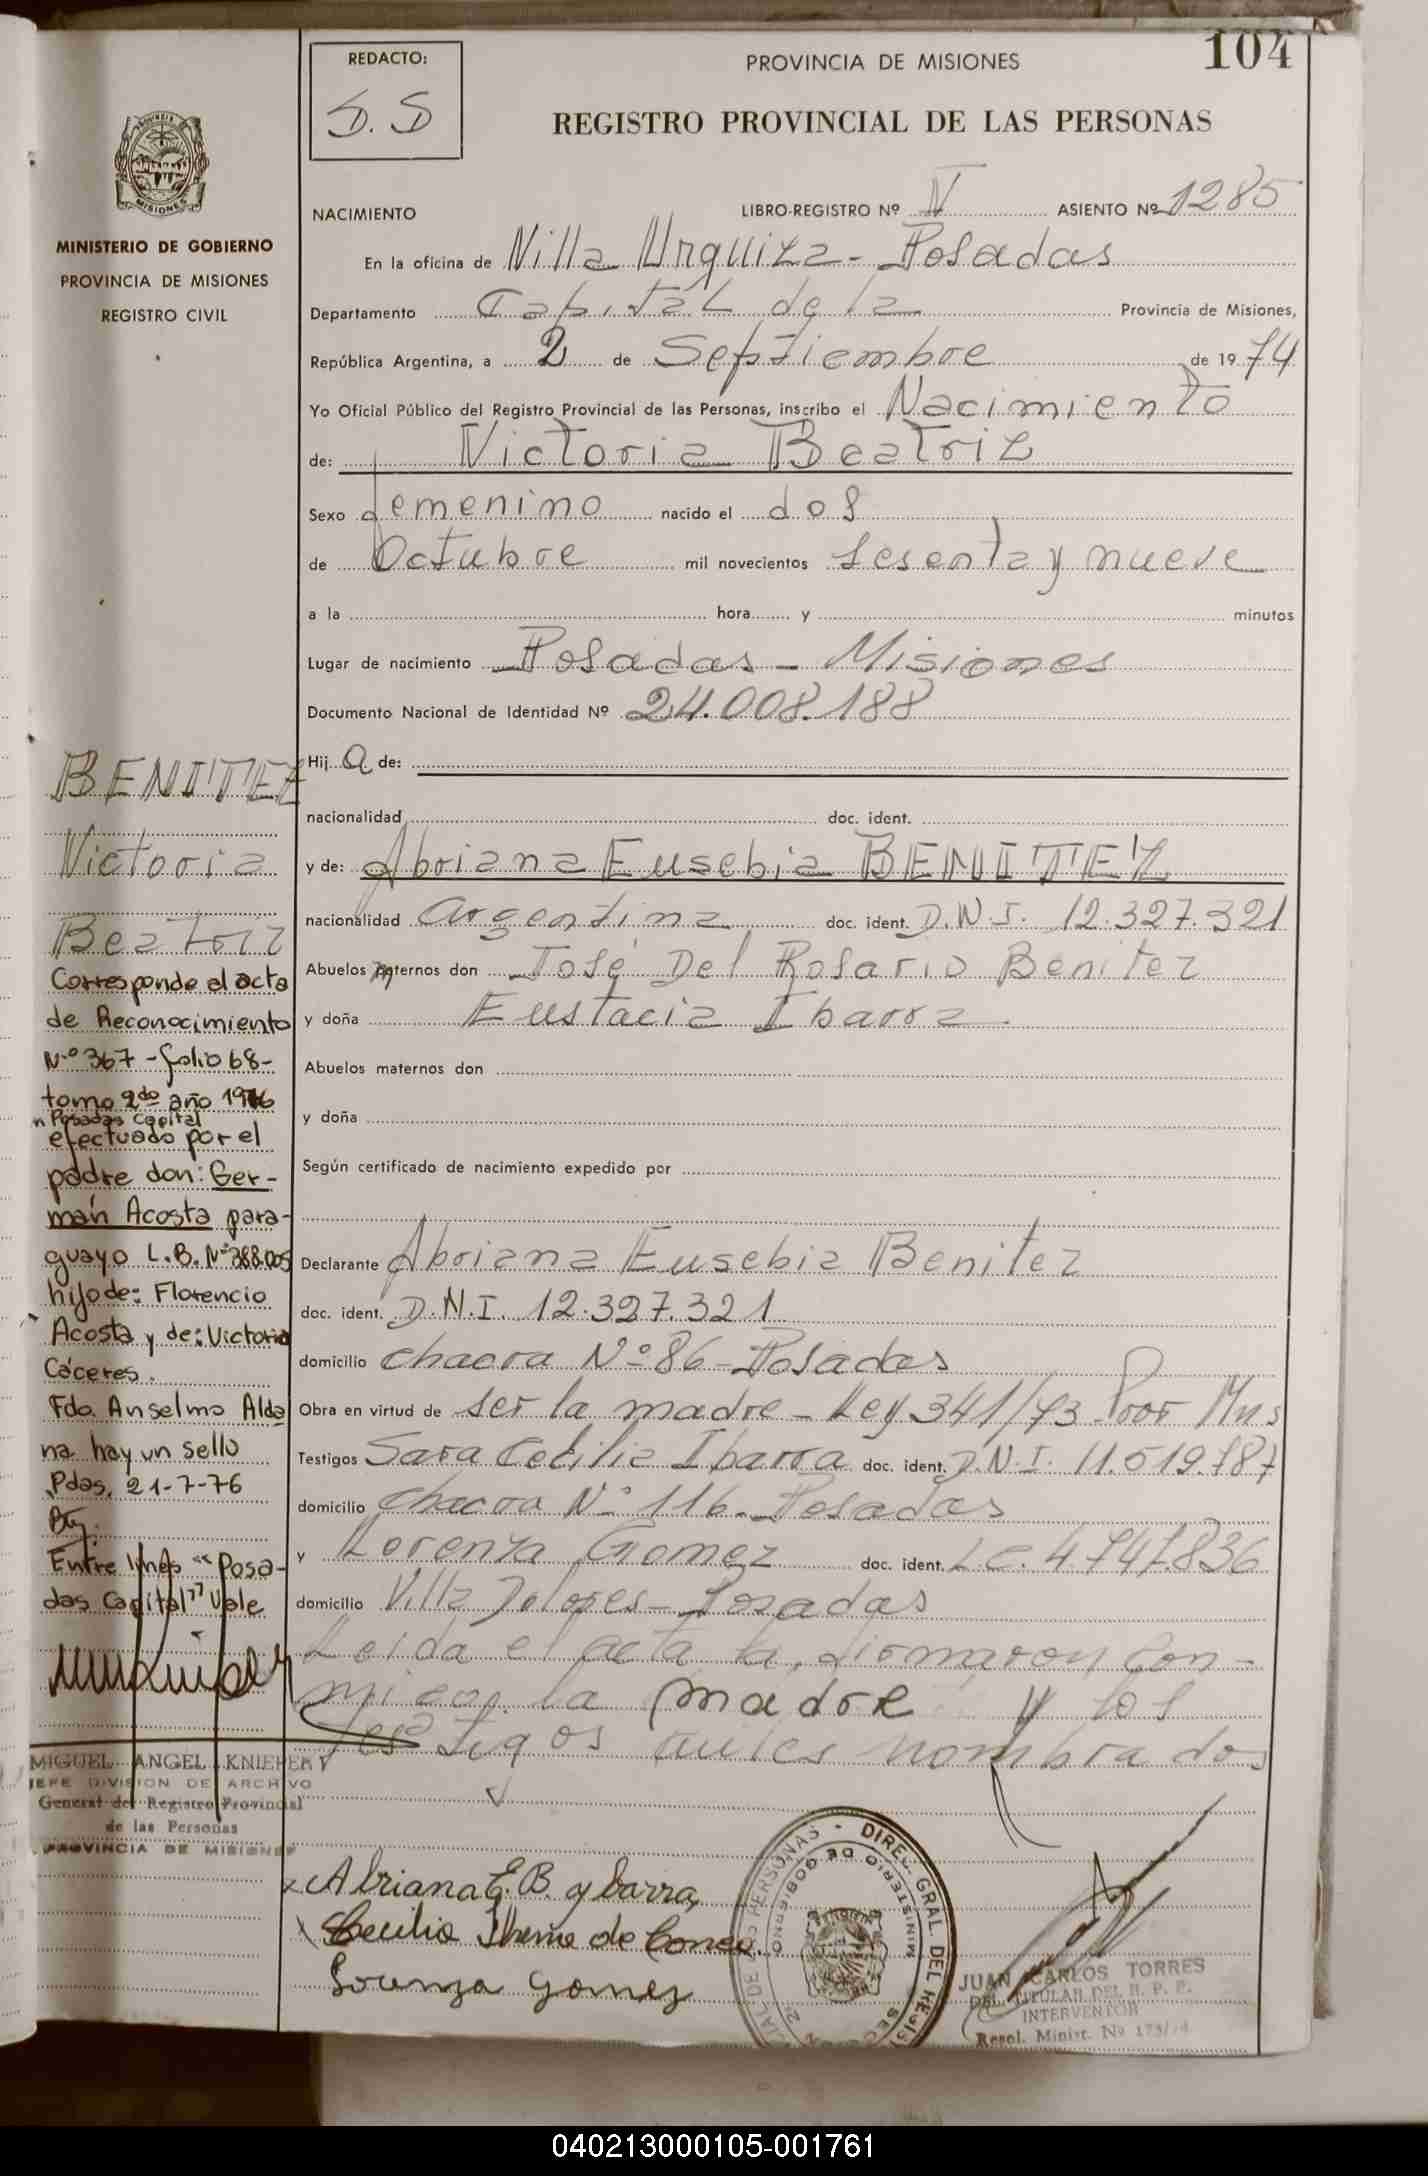 104
REDACTO:
D. D
PROVINCIA DE MISIONES
REGISTRO PROVINCIAL DE LAS PERSONAS
PROVINCIA DE
MISIONES
MINISTERIO DE GOBIERNO
PROVINCIA DE MISIONES
REGISTRO CIVIL
NACIMIENTO LIBRO-REGISTRO Nº ASIENTO Nº 1285
En la oficina de Villa Urquiza - Posadas
Departamento Capital de la Provincia de Misiones,
República Argentina, a 2 de Septiembre de 1974
Yo Oficial Público del Registro Provincial de las Personas, inscribo el Nacimiento
de: Victoria Beatriz
Sexo femenino nacido el dos
de Octubre mil novecientos sesenta y nueve
a la hora y minutos
Lugar de nacimiento Posadas - Misiones
Documento Nacional de Identidad Nº 24.008.188
Hija de:
nacionalidad doc. ident.
y de: Abriana Eusebia BENITEZ
nacionalidad argentina doc. ident. D.N.I. 12.327.321
Abuelos maternos don José Del Rosario Benitez
y doña Eustacia Ibarra
Abuelos maternos don
y doña
Según certificado de nacimiento expedido por
Declarante Abriana Eusebia Benitez
doc. ident. D.N.I. 12.327.321
domicilio chacra Nº 86 - Posadas
Obra en virtud de ser la madre - Ley 341/73
Testigos Sara Cecilia Ibarra doc. ident. D.N.I. 11.519.787
domicilio chacra Nº 116 - Posadas
y Lorenza Gomez doc. ident. L.C. 4.747.836
domicilio Villa Dolores - Posadas
Leida el acta la firmaron con-
migo, la madre y los
testigos antes nombrados
Abriana E. B. ybarra
Cecilia de
Lorenza Gomez
BENITEZ
Victoria
Beatriz
Corresponde al acta
de Reconocimiento
Nº 367 - folio 68 -
tomo 2do año 1976
n Posadas Capital
efectuado por el
padre don: Ger-
mán Acosta para-
guayo L.B. Nº 388.005
hijo de: Florencio
Acosta y de: Victoria
Cáceres.
Fdo. Anselmo Alda
na hay un sello
Pdas, 21-7-76
Entre línes "Posa-
das Capital" Vale
MIGUEL ANGEL KNIEPER
JEFE DIVISION DE ARCHIVO
General del Registro Provincial
de las Personas
PROVINCIA DE MISIONES
DIREC. GRAL. DEL REGIST
CIAL DE LAS PERSONAS
MINISTERIO DE GOBIERNO
JUAN CARLOS TORRES
DEL. TITULAR DEL R. P. P.
INTERVENTOR
Resol. Minist. Nº 173/74
040213000105-001761